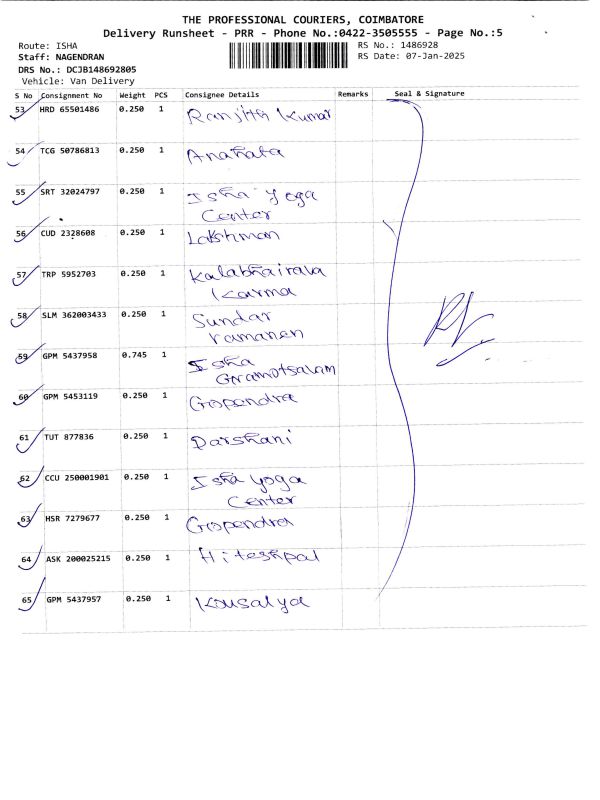 THE PROFESSIONAL COURIERS, COIMBATORE
Delivery Runsheet - PRR - Phone No.:0422-3505555 - Page No.:5
Route: ISHA
RS No.: 1486928
Staff: NAGENDRAN
RS Date: 07-Jan-2025
DRS No.: DCJB148692805
Vehicle: Van Delivery
S No Consignment No Weight PCS Consignee Details Remarks Seal & Signature
53 HRD 65501486 0.250 1 Ranjith Kumar
54 TCG 50786813 0.250 1 Anahata
55 SRT 32024797 0.250 1 Isha Yoga
Center
56 CUD 2328608 0.250 1 Lakshman
57 TRP 5952703 0.250 1 Kalabhairava
Karma
58 SLM 362003433 0.250 1 Sundar
ramanen
59 GPM 5437958 0.745 1 Isha
Gramotsalam
60 GPM 5453119 0.250 1 Gopendra
61 TUT 877836 0.250 1 Darshani
62 CCU 250001901 0.250 1 Isha Yoga
Center
63 HSR 7279677 0.250 1 Gopendra
64 ASK 200025215 0.250 1 Hiteshpal
65 GPM 5437957 0.250 1 Kousalya